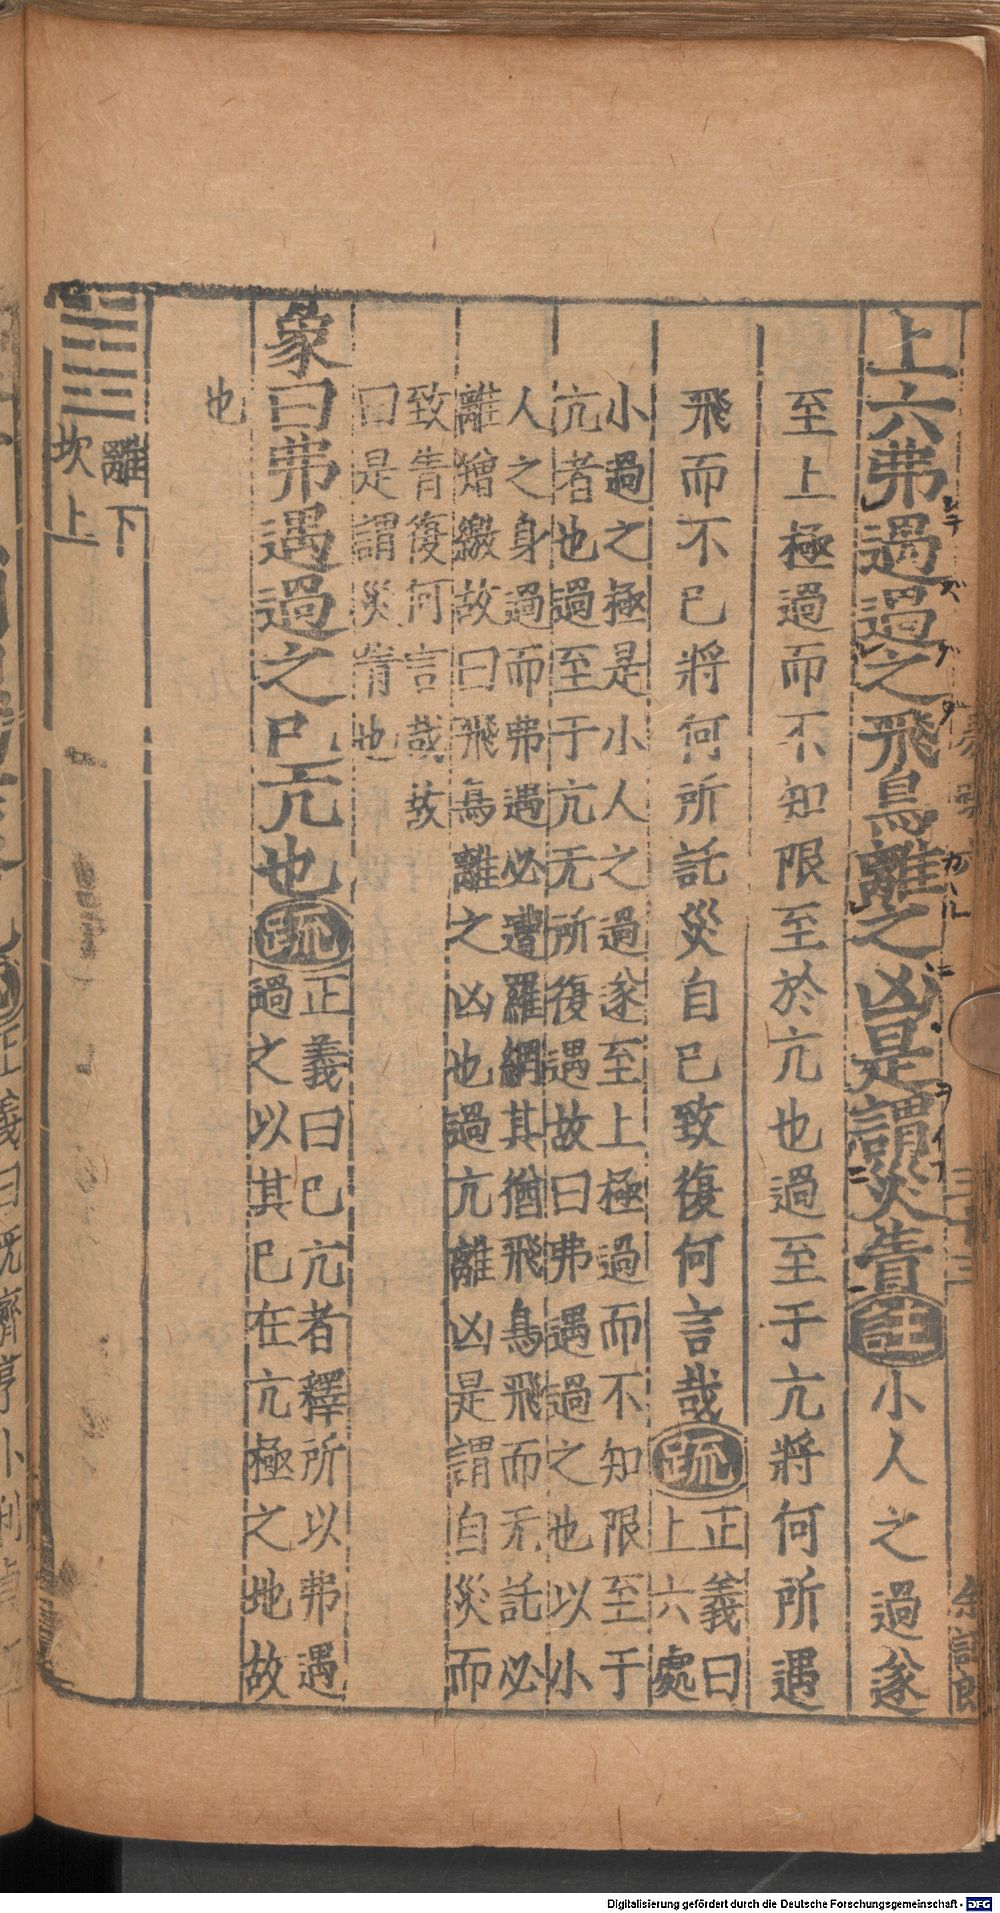 上六弗遇過之飛鳥離之凶是謂災眚註小人之過遂
至上極過而不知限至於亢也過至于亢將何所遇
飛而不已將何所託災自已致復何言哉疏正義曰
上六處
小過之極是小人之過遂至上極過而不知限至于
亢者也過至于亢无所復遇故曰弗遇過之也以小
人之身過而弗遇必遭羅網其猶飛鳥飛而无託必
離矰繳故曰飛鳥離之凶也過亢離凶是謂自災而
致眚復何言哉故
曰是謂災眚也
象曰弗遇過之已亢也疏正義曰已亢者釋所以弗遇
過之以其已在亢極之地故
也
離下
坎上
Digitalisierung gefördert durch die Deutsche Forschungsgemeinschaft - DFG